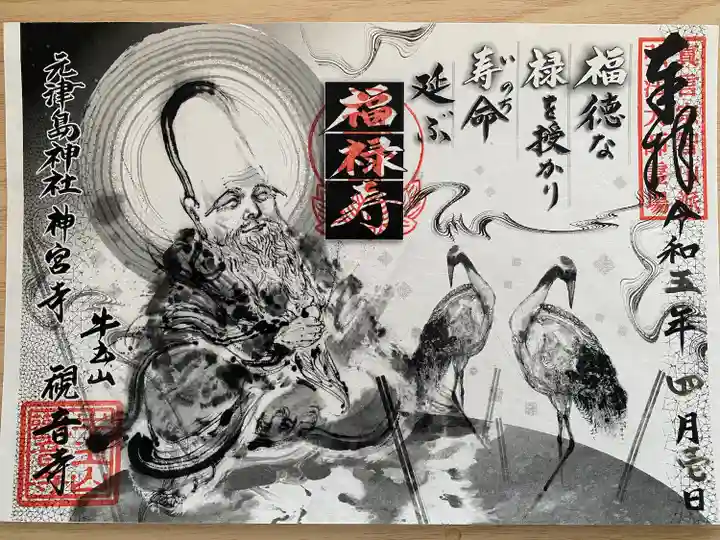 奉拝
令和五年四月壱日
福徳な
禄を授かり
寿命
いのち
延ぶ
福禄寿
元津島神社 神宮寺
牛玉山
観音寺